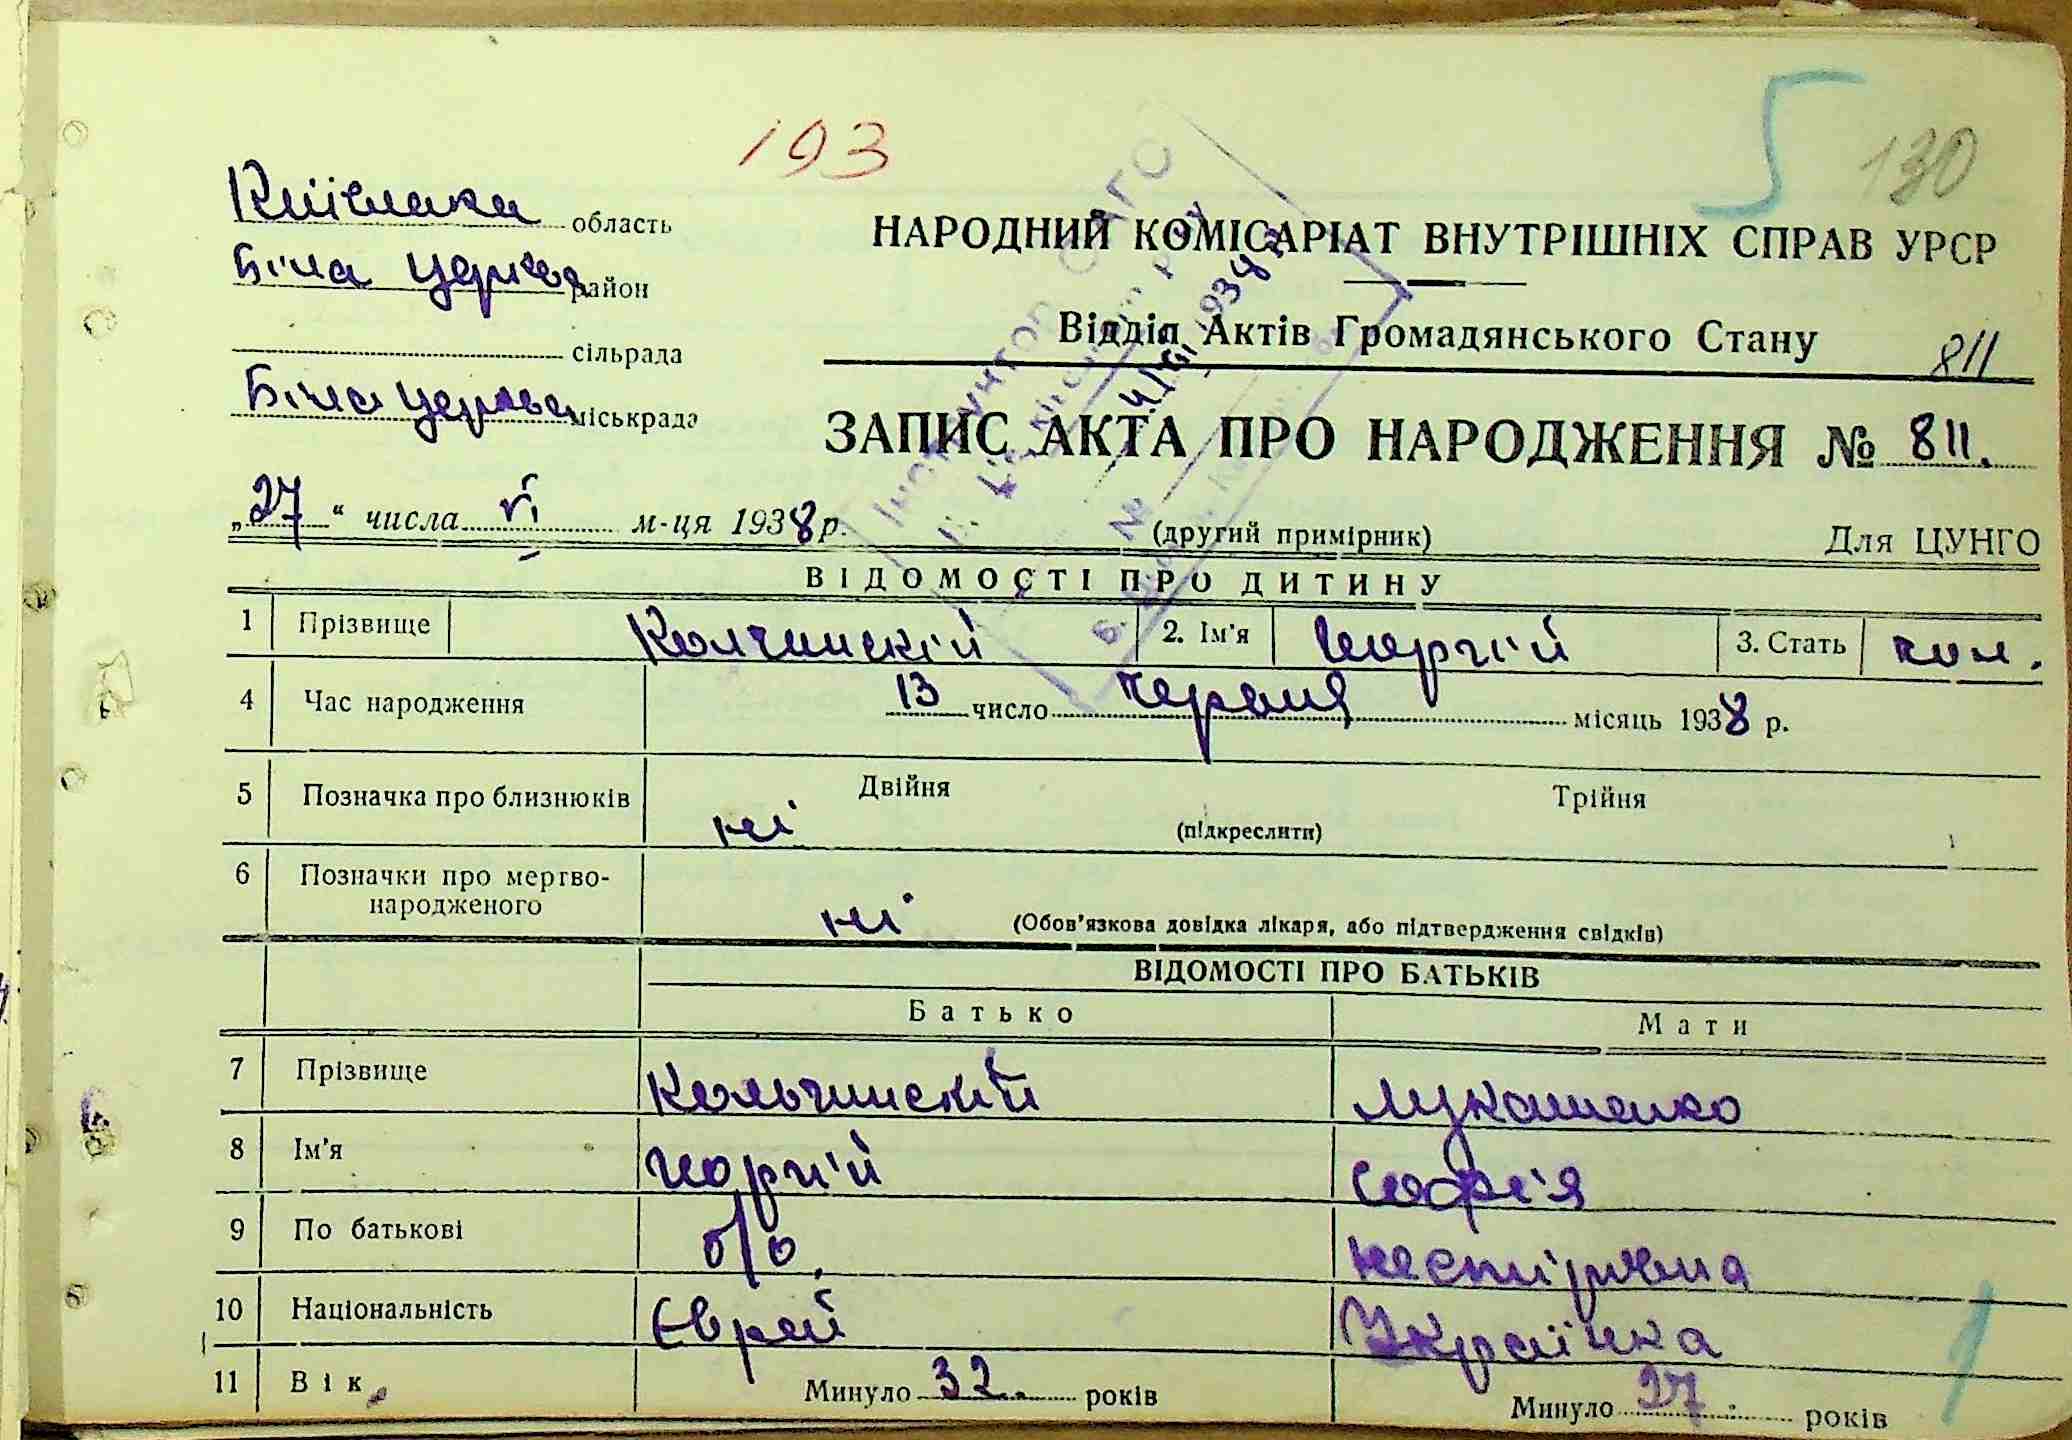 193
5
130
Київська область
Біла Церква район
сільрада
Біла Церква міськрада
НАРОДНИЙ КОМІСАРІАТ ВНУТРІШНІХ СПРАВ УРСР
Відділ Актів Громадянського Стану
811
ЗАПИС АКТА ПРО НАРОДЖЕННЯ № 811.
„27“ числа VI м-ця 1938 р.
(другий примірник)
Для ЦУНГО
ВІДОМОСТІ ПРО ДИТИНУ
1 Прізвище Колчинскій 2. Ім'я Георгій 3. Стать чол.
4 Час народження 13 число червня місяць 1938 р.
5 Позначка про близнюків ні Двійня (підкреслити) Трійня
6 Позначки про мертво-
народженого ні (Обов'язкова довідка лікаря, або підтвердження свідків)
ВІДОМОСТІ ПРО БАТЬКІВ
Батько Мати
7 Прізвище Кольчинскій Лукашенко
8 Ім'я Георгій Софія
9 По батькові б/о. Нестірівна
10 Національність Єврей Українка
11 Вік Минуло 32 років Минуло 27 років